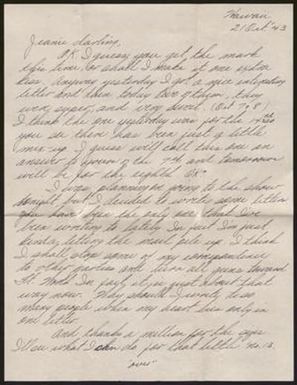 Hawaii
21 Oct '43
Jeanie darling,
O.K. I guess you get the mark
this time, or shall I make it one extra
kiss. Anyway yesterday I got a nice
letter and then today two of them, they
were super, and very sweet. (Oct 7, 8)
I think the one yesterday was for the
you see there has been just a little
mix up. I guess will call this one an
answer to yours of the 7th and tomorrow
will be for the eighth O.K.
I was planning on going to the show
tonight but I decided to write some letters
you have been the only one that I've
been writing to lately I'm just
letting the mail pile up. I think
I shall stop some of my correspondence
to other parties and turn all guns toward
it just about that
way now. Why should I write
many people when my heart lies only in
one letter.
And thanks a million for the
what I do for that letter no. 13.
over